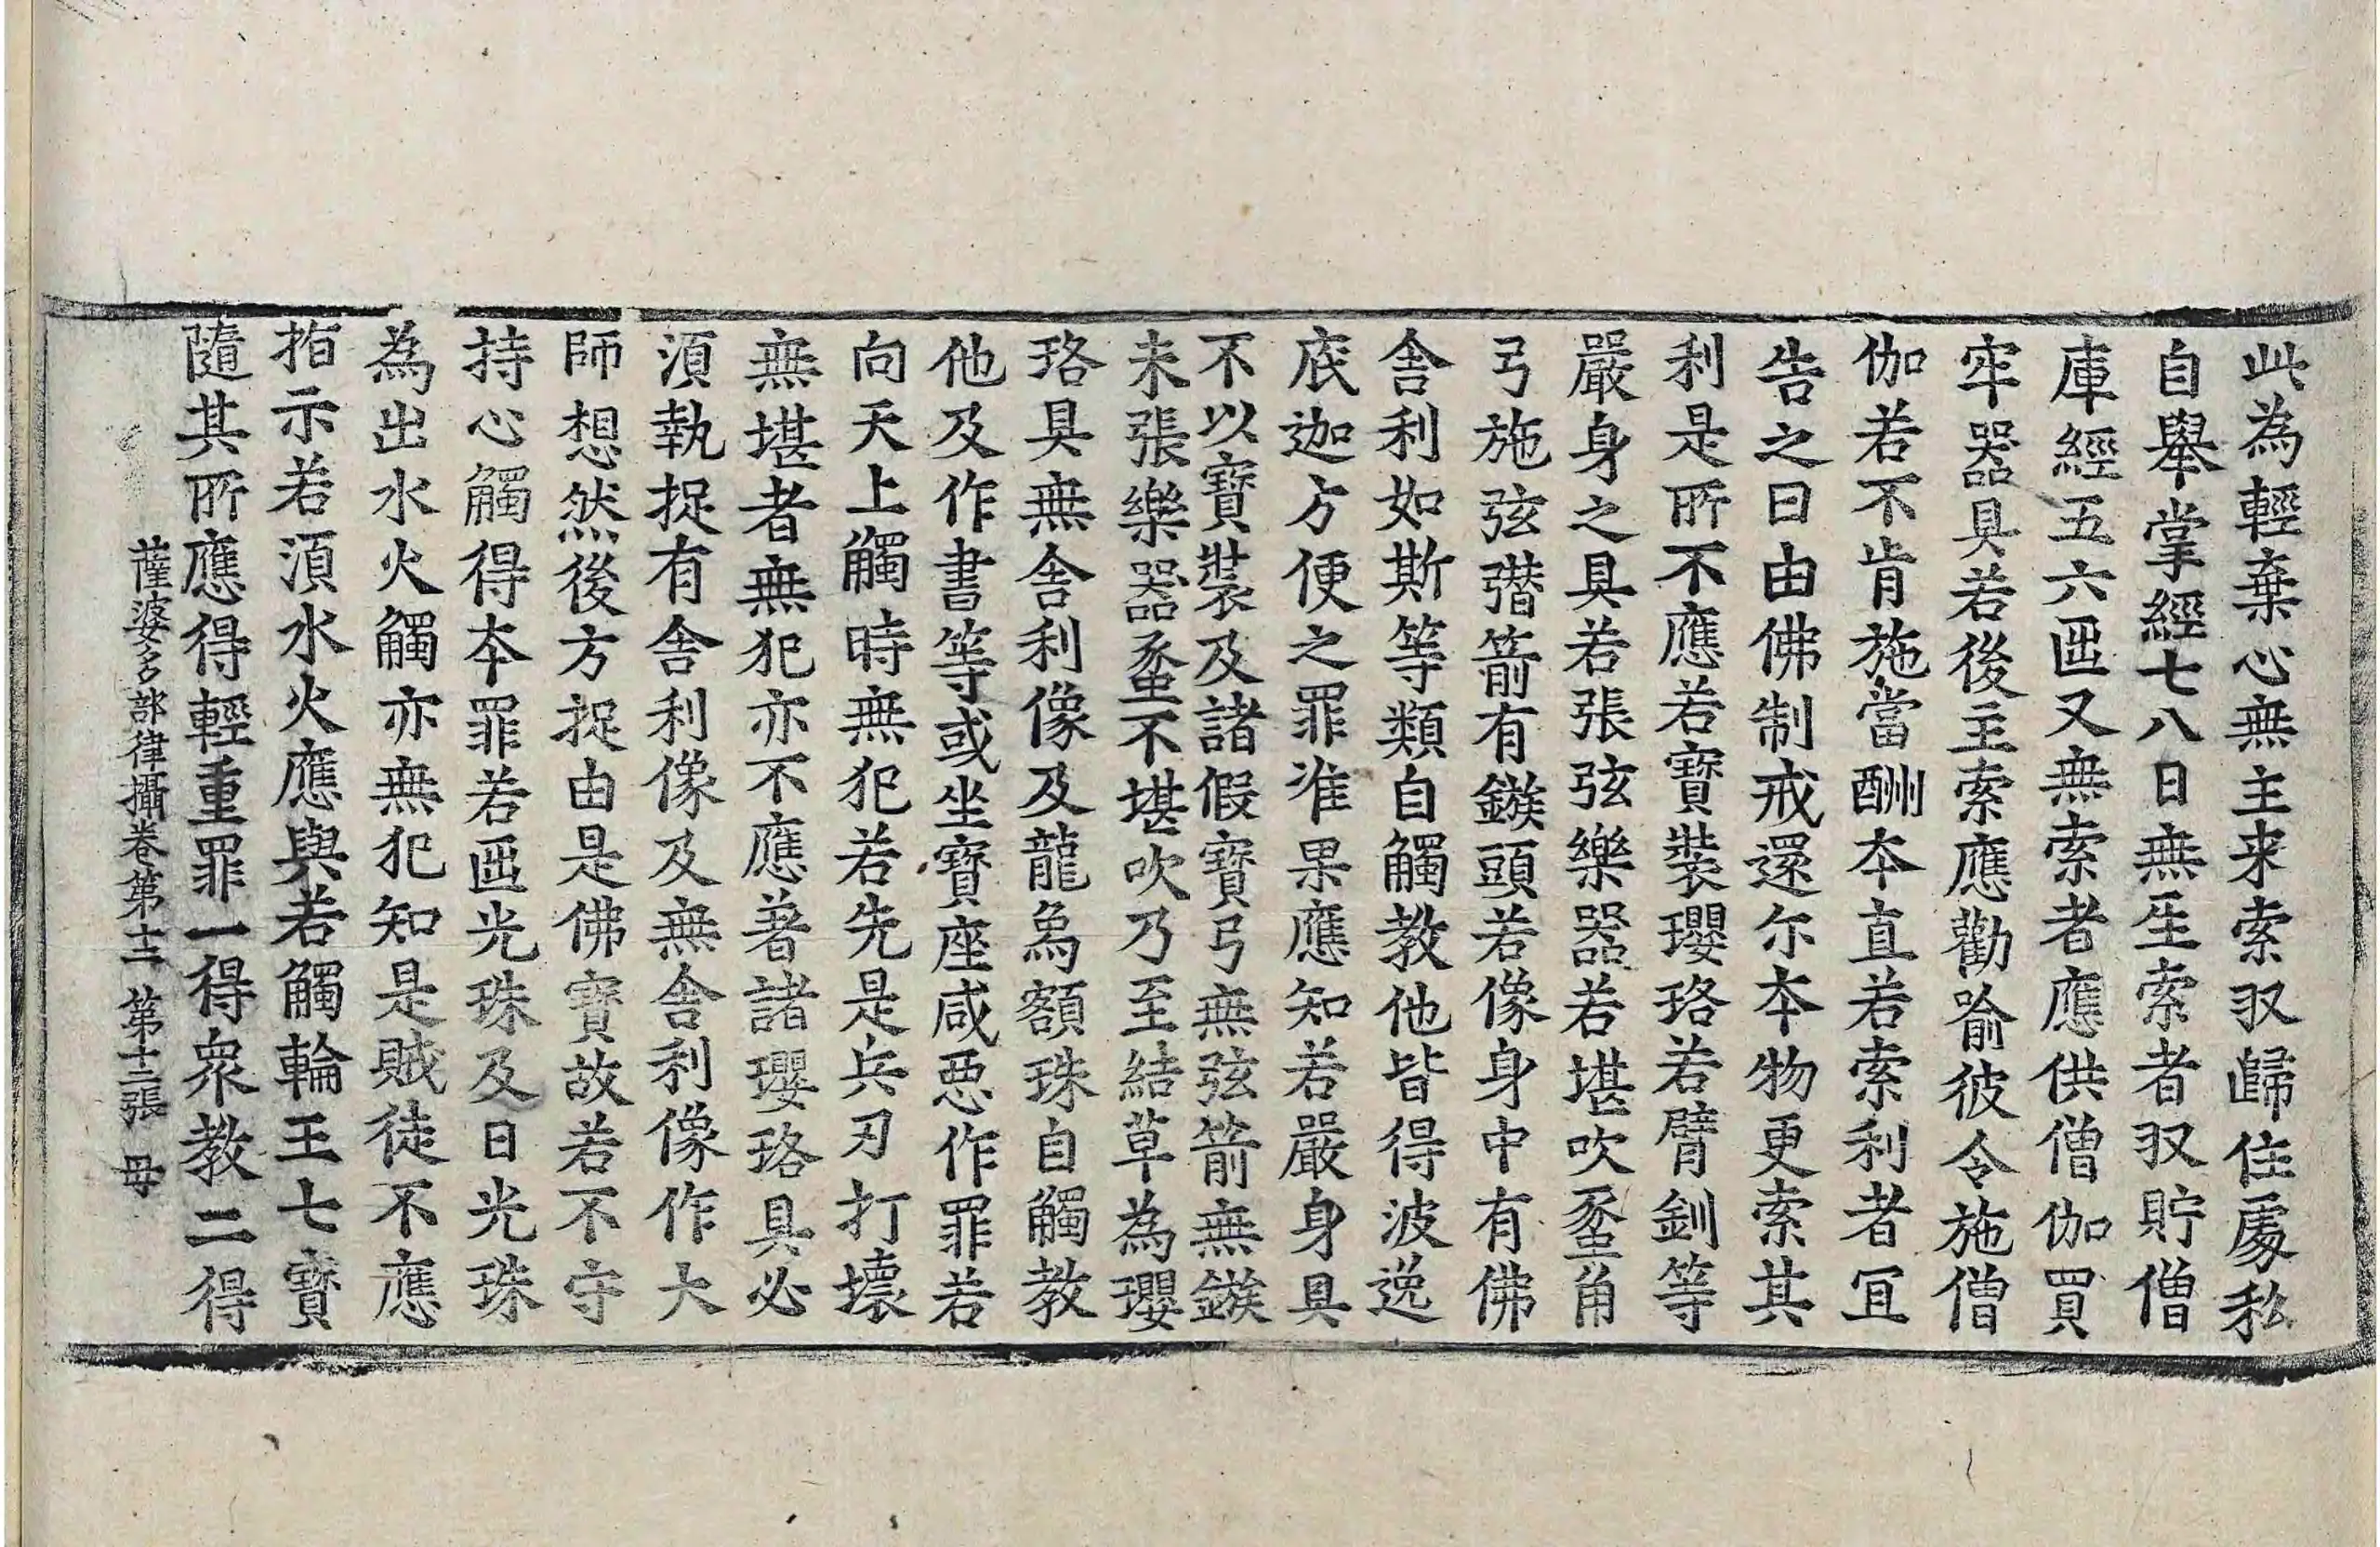 此為輕棄心無主来索収歸住處私
自舉掌經七八日無主索者収貯僧
庫經五六迊又無索者應供僧伽買
牢器具若後主索應勸喻彼令施僧
伽若不肯施當酬夲直若索利者冝
告之曰由佛制戒還尓夲物更索其
利是所不應若寶裝瓔珞若臂釧等
嚴身之具若張弦樂器若堪吹蚉角
弓施弦䃡箭有鏃頭若像身中有佛
舍利如斯等類自觸教他皆得波逸
底迦方便之罪准果應知若嚴身具
不以寶裝及諸假寶弓無弦箭無鏃
未張樂器蚉不堪吹乃至結草為瓔
珞具無舍利像及龍烏額珠自觸教
他及作書等或坐寶座咸惡作罪若
向天上觸時無犯若先是兵刃打壞
無堪者無犯亦不應著諸瓔珞具必
湏執捉有舍利像及無舍利像作大
師想然後方捉由是佛寶故若不守
持心觸得夲罪若迊光珠及日光珠
為出水火觸亦無犯知是賊徒不應
指示若湏水火應與若觸輪王七寶
隨其所應得輕重罪一得衆教二得
薩婆多部律攝卷第十二 第十二張 毋